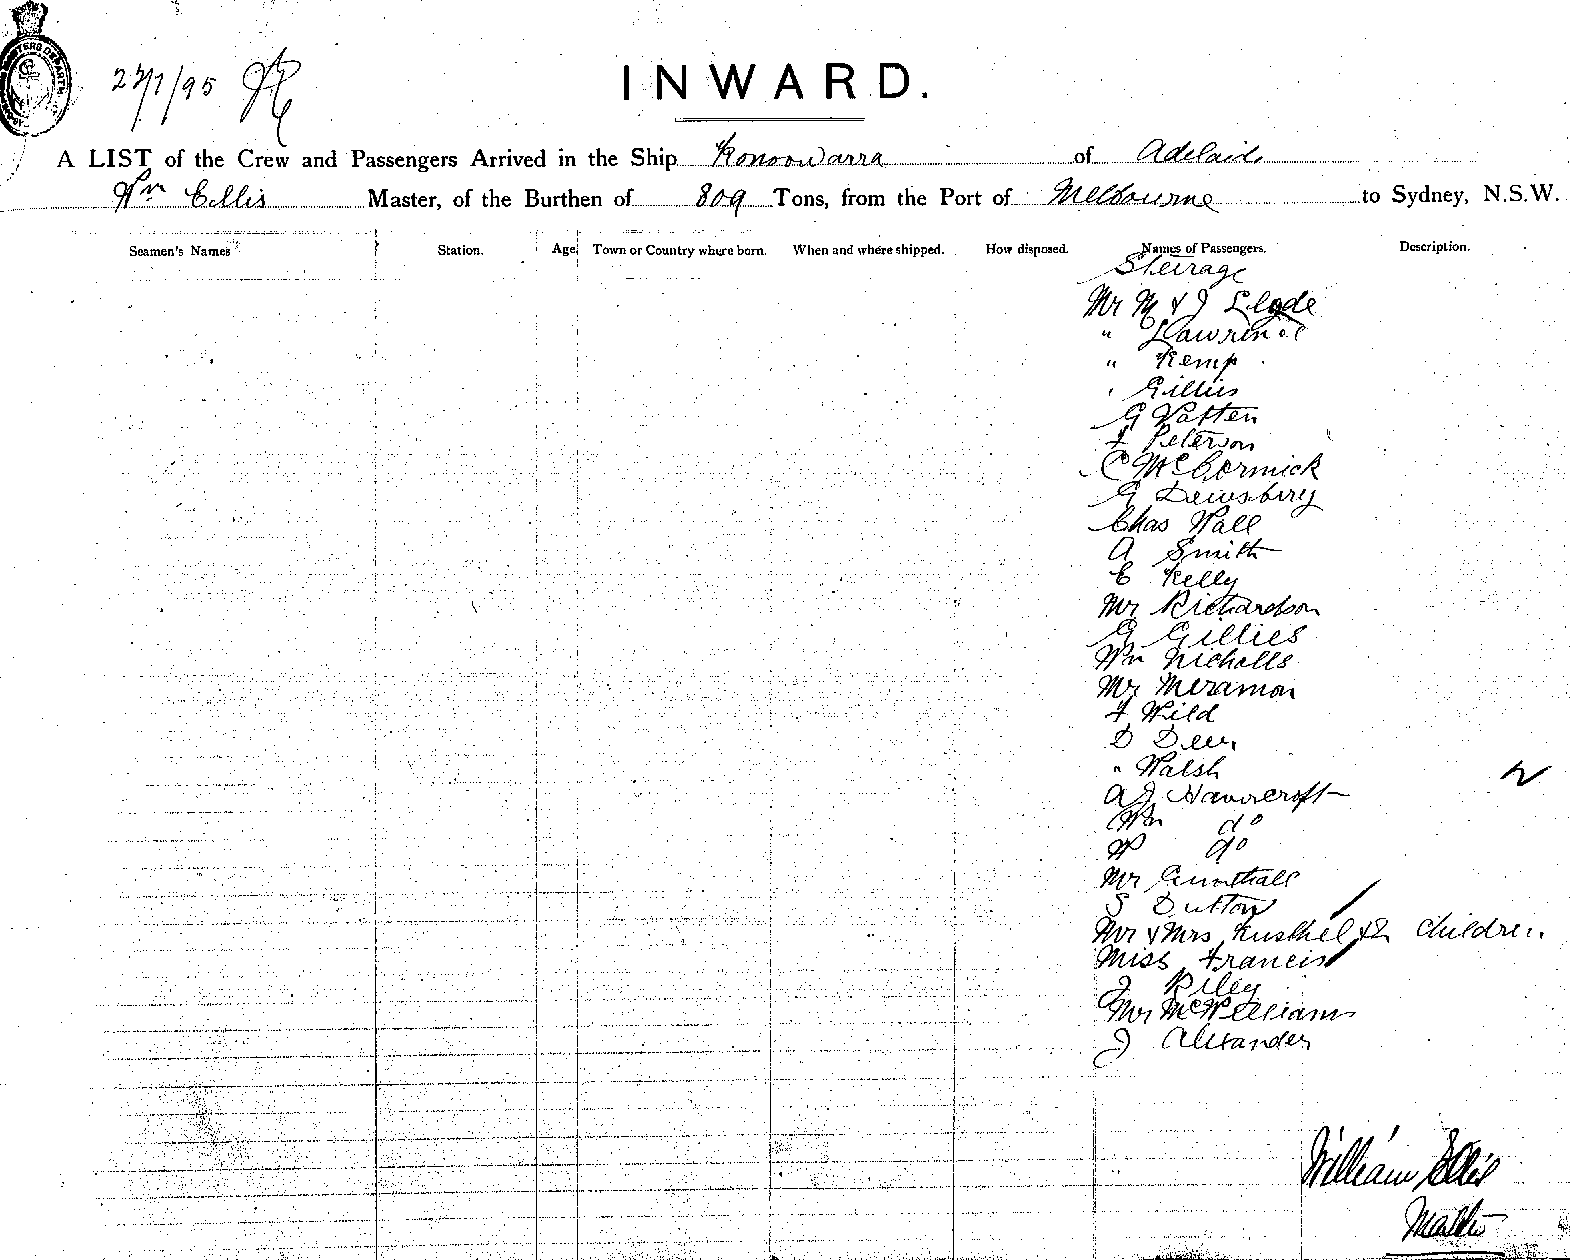 27/1/95
INWARD.
A LIST of the Crew and Passengers Arrived in the Ship Konoowarra of Adelaide
Wm Ellis Master, of the Burthen of 809 Tons, from the Port of Melbourne to Sydney, N.S.W.
Seamen's Names Station. Age Town or Country where born. When and where shipped. How disposed. Names of Passengers. Description.
Steirage
Mr M & J Clyde
" Lawrence
" Kemp
" Gillies
G Patten
F Peterson
C McCormick
G Dewsbery
Chas Wall
A Smith
E Kelly
Mr Richardson
G Gillies
Wm Nicholls
Mr Meramon
F Wild
D Deer
" Walsh
A J Hawcroft
Wm do
W do
Mr
S Dutton
Mr & Mrs & 2 children
Miss Francis
J Riley
Mr McWilliams
J Alexander
William Ellis
Master